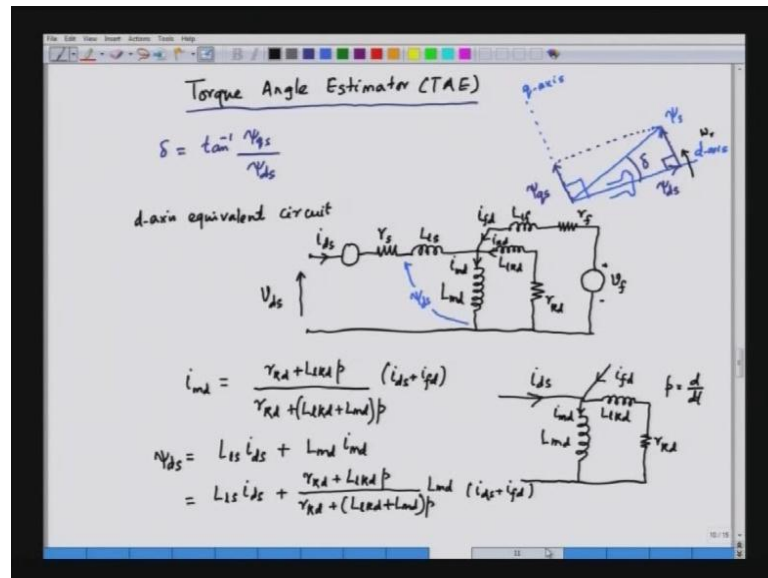 File Edit View Insert Actions Tools Help
Torque Angle Estimator (TAE)
δ = tan⁻¹ Ψqs / Ψds
q-axis
Ψs
ωr
d-axis
δ
Ψqs
Ψds
d-axis equivalent circuit
ids
rs
Lls
ifd
Llf
rf
ikd
Llkd
imd
Lmd
rkd
Ψds
Vds
+
vf
-
imd = (rkd + Llkd p) / (rkd + (Llkd + Lmd) p) (ids + ifd)
ids
ifd
p = d/dt
imd
Llkd
Lmd
rkd
Ψds = Lls ids + Lmd imd
= Lls ids + (rkd + Llkd p) / (rkd + (Llkd + Lmd) p) Lmd (ids + ifd)
11